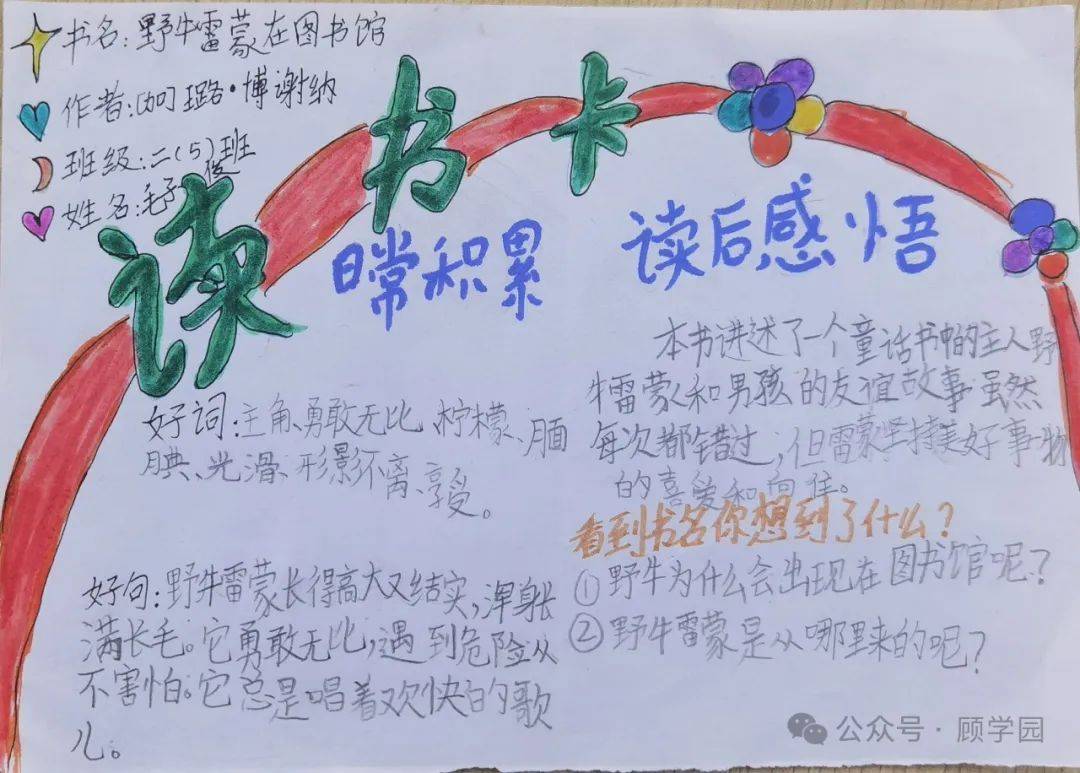 书名:野牛雷蒙在图书馆
作者:伽璐·博谢纳
班级:二(5)班
姓名:毛子俊
读书卡
日常积累
读后感悟
好词:主角、勇敢无比、柠檬、腼
腆、光滑、形影不离、享受。
好句:野牛雷蒙长得高大又结实,浑身长
满长毛。它勇敢无比,遇到危险从
不害怕。它总是唱着欢快的歌
儿。
本书讲述了一个童话书中的主人野
牛雷蒙和男孩的友谊故事虽然
每次都错过,但雷蒙坚持美好事物
的喜爱和向往。
看到书名你想到了什么?
①野牛为什么会出现在图书馆呢?
②野牛雷蒙是从哪里来的呢?
公众号·顾学园